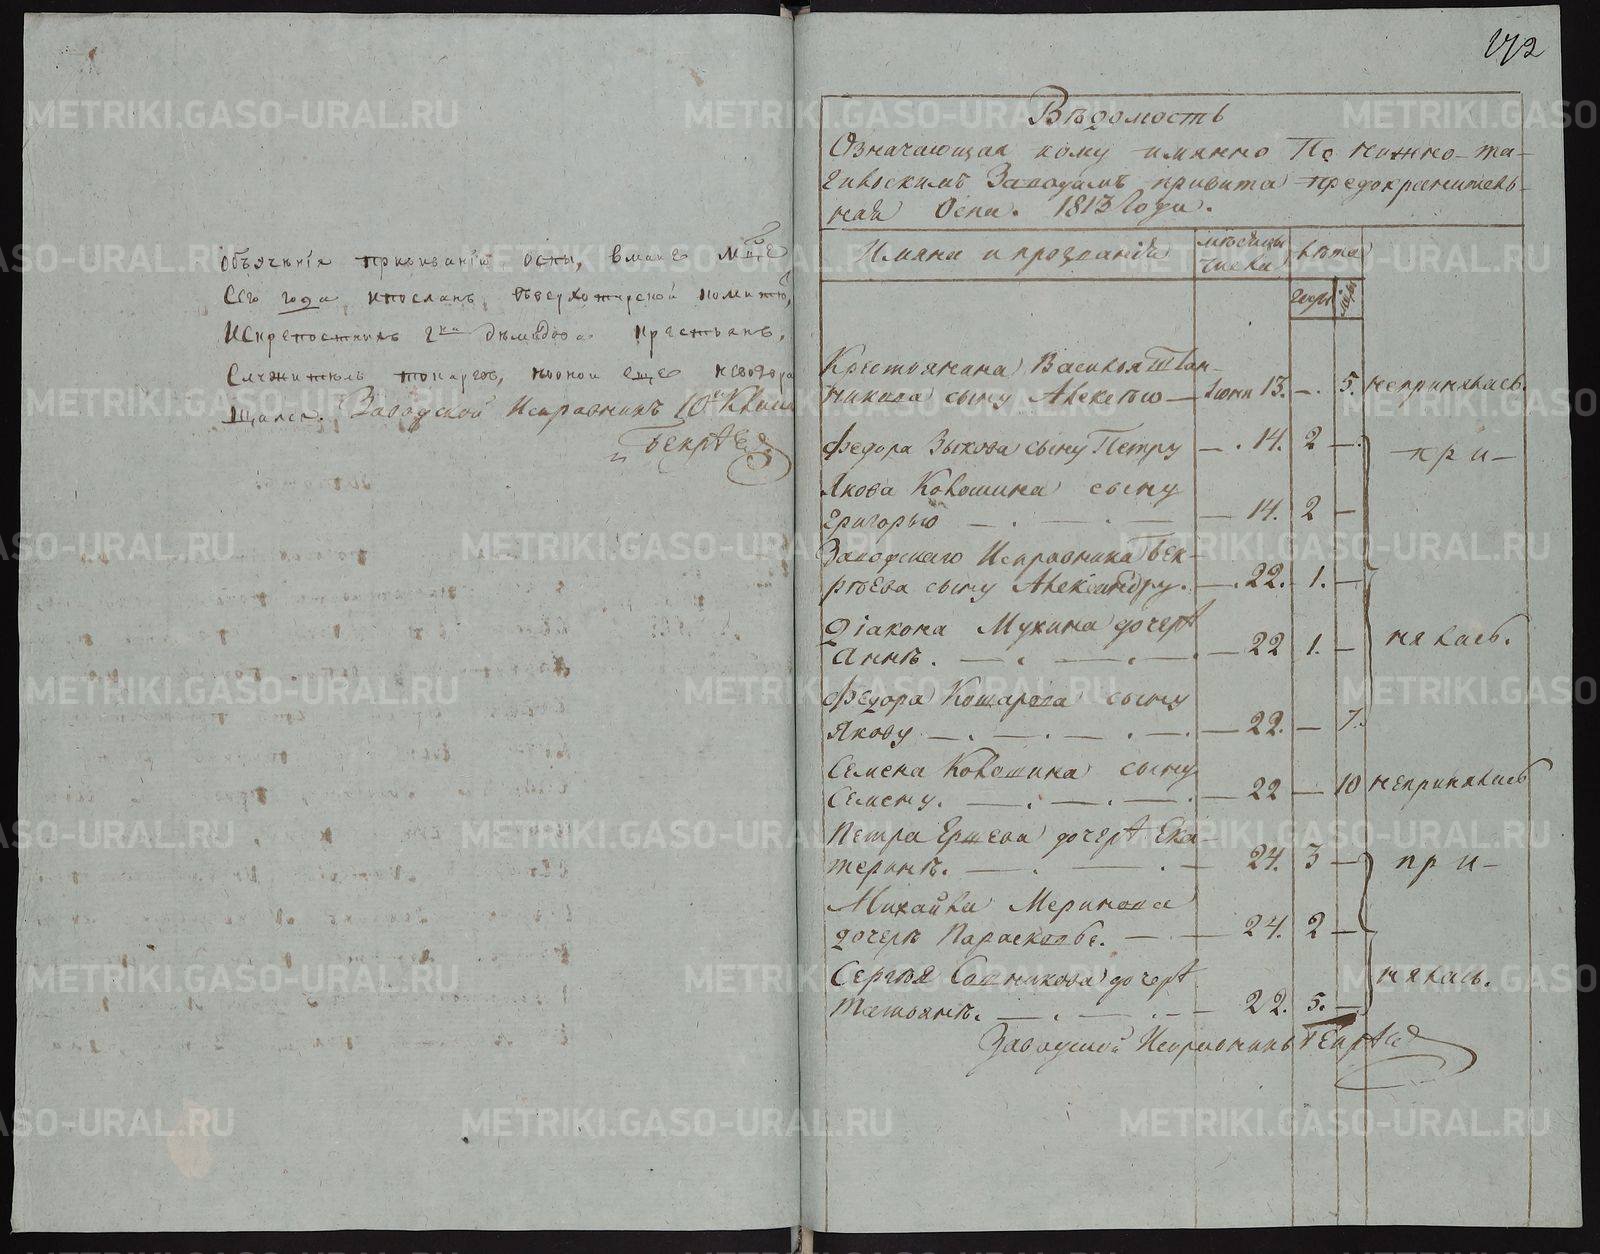 обученія прививанія оспы, в маие м-це
сего года, и посланъ
Искрепостныхъ г-на Демидова крестьянъ,
Служитель токаревъ, ионои еще невозвра
щался. Заводской Исправникъ 10 го Класа
Бекрѣев
172
Вѣдомость
Означающая кому имянно По нижно-та-
гильскимъ Заводамъ привита предохранитель-
ная Оспа. 1813 Года.
Имяна и прозванія мѣсяцы числа лѣта
годы
Крестьянина Василья
сыну Алексѣю — Іюни 13. — . 5. непринялась.
Федора Зыкова сыну Петру — . 14. 2 — . при-
Якова Ковошина сыну
Григорью — . — . — — 14. 2 —
Заводскаго Исправника Бек-
рѣева сыну Александру. — . 22. 1. —
Діакона Мукина дочерѣ
Аннѣ. — . — . — . — 22 1. — нялась.
Федора Кошарова сыну
Якову — . — . — . — . — 22. — 7.
Семена Ковошина сыну
Семену. — . — . — . — 22 — 10 непринялась
Петра Ершева дочерѣ Ека-
теринѣ. — . — . — 24. 3 — при-
Михайла Меринова
дочерѣ Парасковье. — . — 24. 2 —
Сергѣя Садникова дочерѣ
Татьянѣ. — . — . — — 22. 5. — нялась.
Заводской Исправникъ Бекрѣев
METRIKI.GASO-URAL.RU